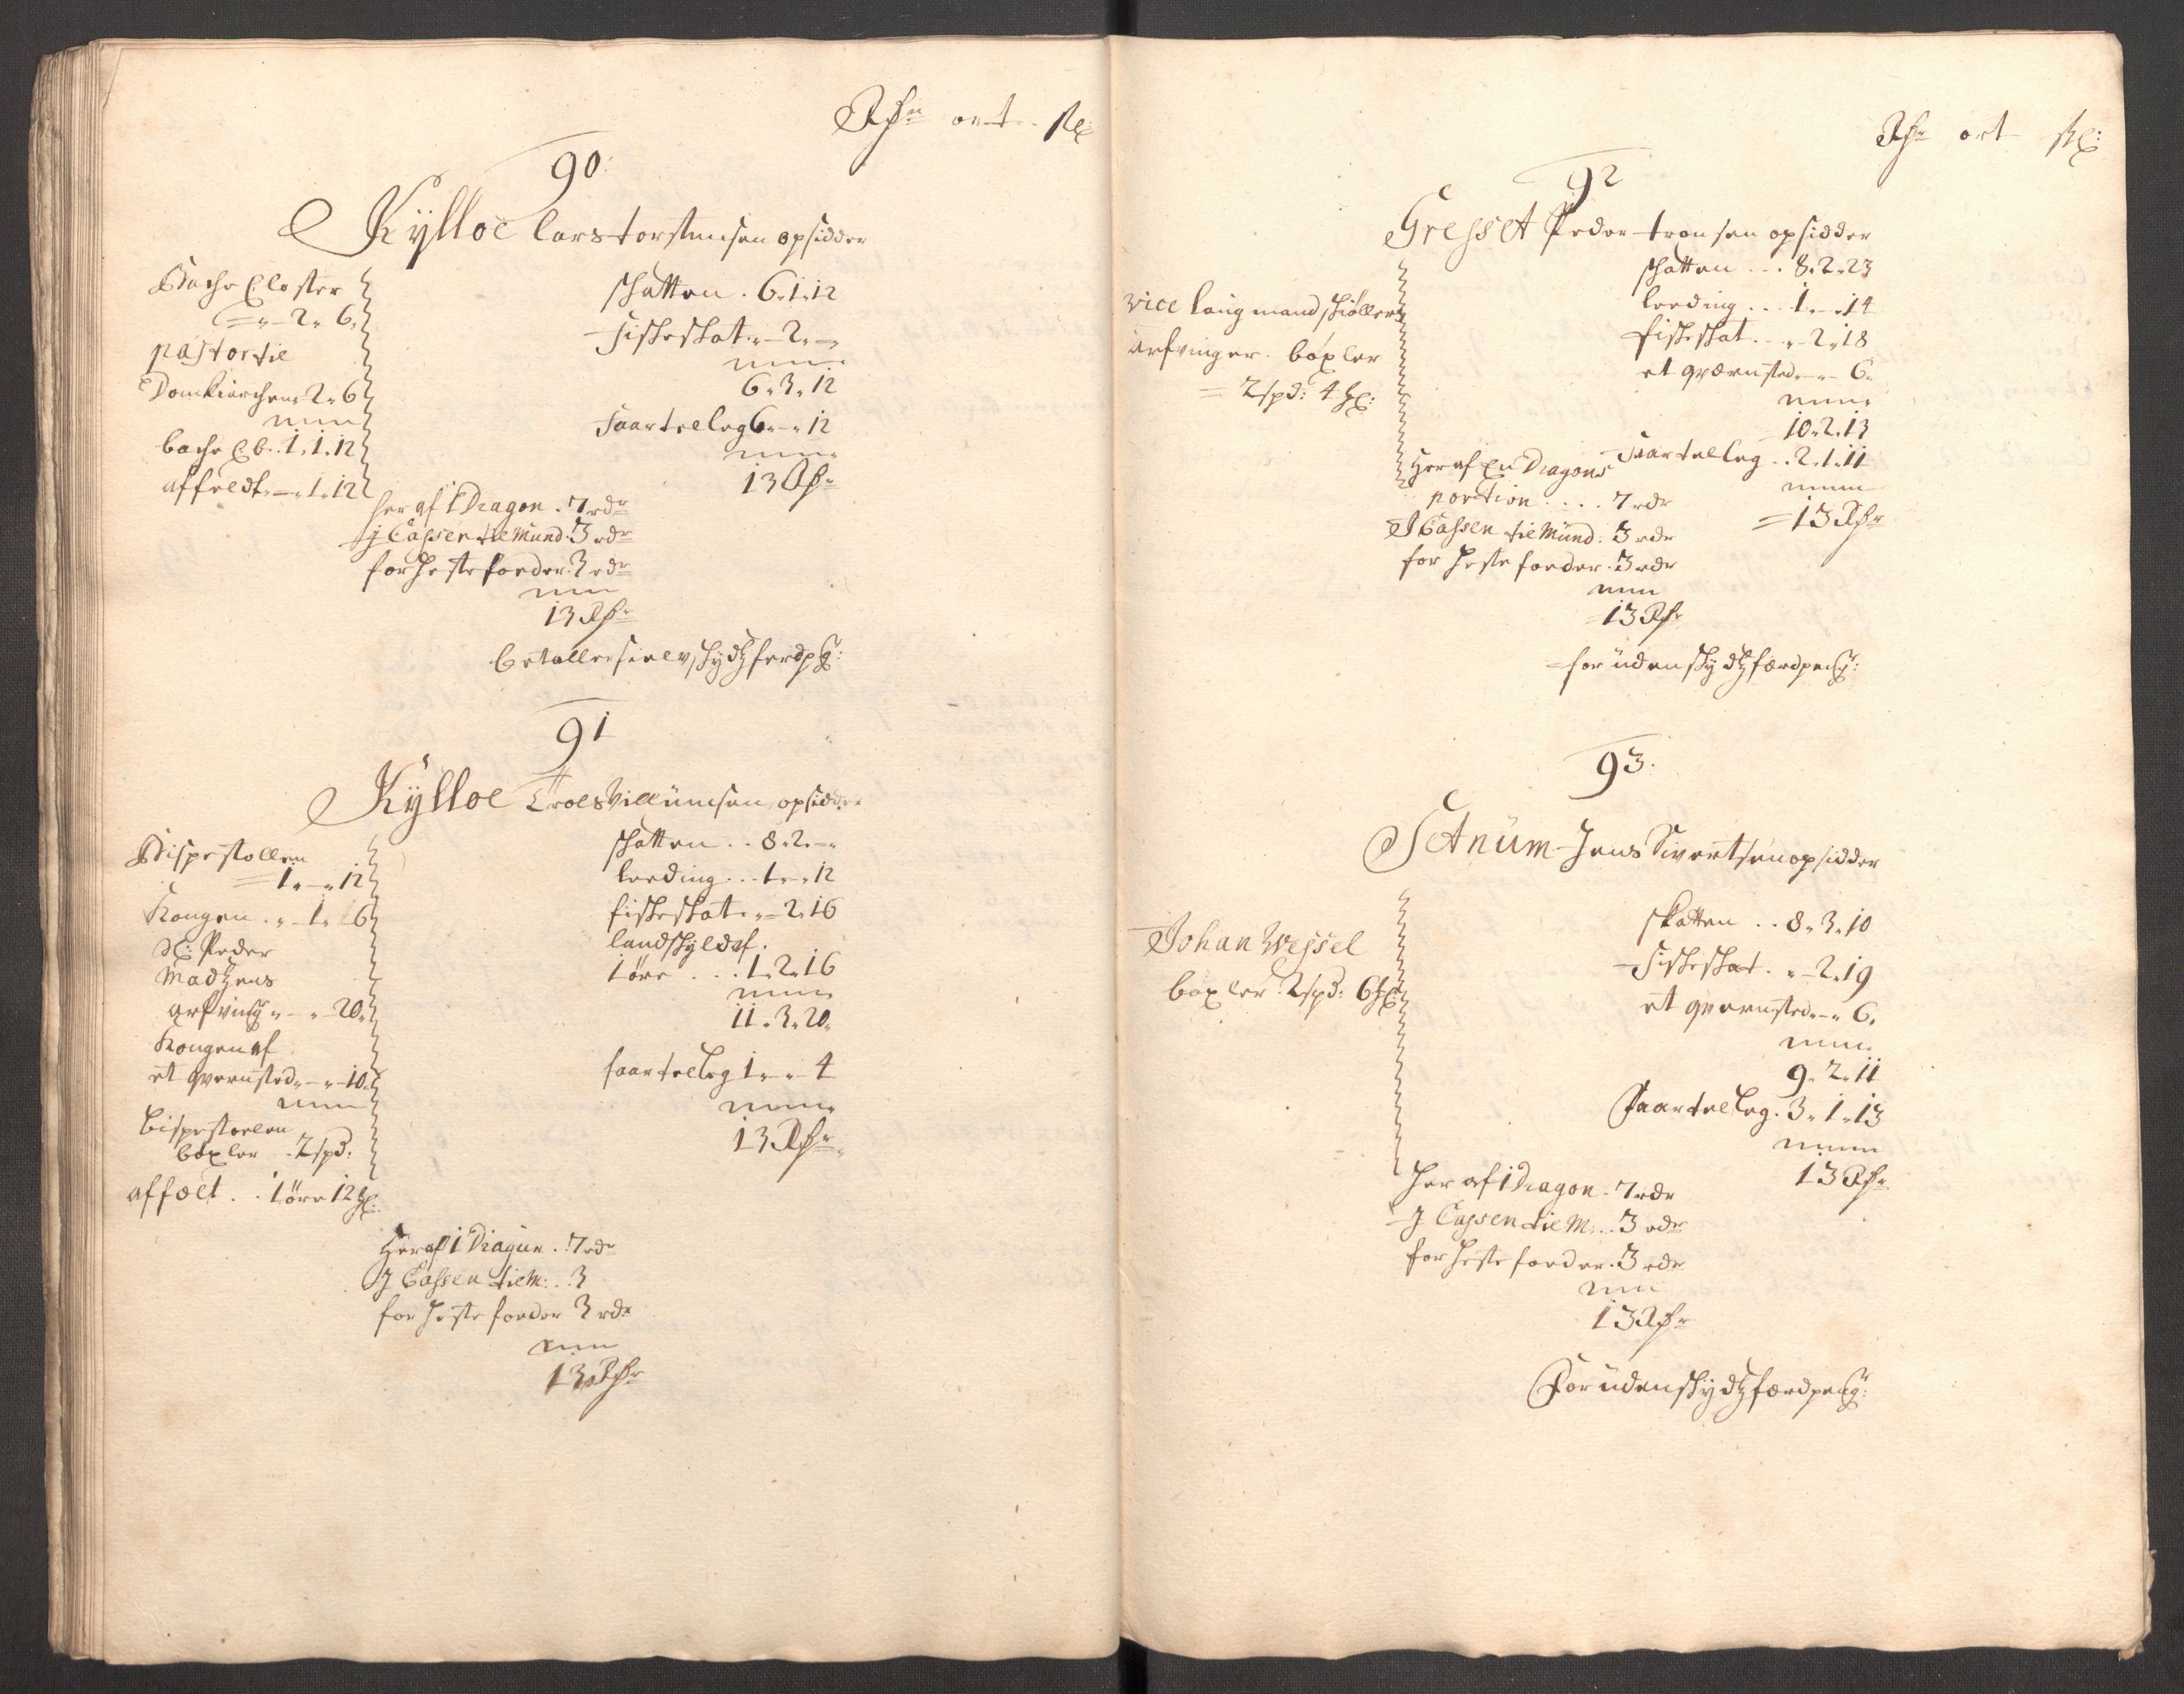 Rdr ort sk:
90:
Kylloe Lars torstensen opsidder
Bache Closter
= „ - 2 „ 6
pastortie
Domkierchen 2 „ 6
bache Cl. b. 1. 1. 12
affeldt „ = „ 1 „ 12
schatten . 6 „ 1 „ 12
Fiskeskat „ - 2 „ -
6 „ 3 „ 12
Faar toeleg 6 „ - „ 12
13 Rdr
her af 1 Dragon . 7 rdr
J Cassen til Mund . 3 rdr
for Heste foeder . 3 rdr
13 Rdr
betaller sielv skydtz ferdpg:
91
Kylloe Troels Villumsen opsidder
Bispestollen
= 1 „ - „ 12
Kongen . „ - 1 „ 16
Sl: Peder
Madtzens
arfving „ - „ - 20
Kongen af
et qvernsted „ - „ - 10
bispestoelen
böxler . 2 spd:
affoet . . 1 öre 12 ℔:
schatten . . 8 „ 2 „ -
leeding . . . 1 „ - „ 12
fiskeskat . „ - 2 „ 16
landskyld af .
1 öre . . . 1 „ 2 „ 16
11 „ 3 „ 20
faar toeleg 1 „ - „ 4
13 Rdr
Her af 1 Dragun . 7 rdr
J Cassen til M: . . 3
for Heste foeder 3 rdr
13 Rdr
Rdr ort sk:
92
Gresset Peder tronsen opsidder
vice laugmand skiöllers
arfvinger . böxler
= 2 spd: 4 ℔:
schatten . . . 8 „ 2 „ 23
leeding . . . 1 „ - „ 14
fiskeskat . . „ - 2 „ 18
et qværnsted „ - „ - 6
10 „ 2 „ 13
Faar toeleg . . 2 „ 1 „ 11
= 13 Rdr
Her af En Dragons
portion . . . . 7 rdr
J Cassen til Mund: 3 rdr
for Heste foeder . 3 rdr
13 Rdr
foruden skydtz færdpeng:
93.
Setnum Jens Sivertsen opsidder
Johan Wessel
böxler . 2 spd: 6 ℔:
skatten . . 8 „ 3 „ 10
Fiskeskat . „ - 2 „ 19
et qvernsted „ - „ 6
9 „ 2 „ 11
Faar toeleg . 3 „ 1 „ 13
13 Rdr
Her af 1 Dragon . 7 rdr
J Cassen til M: . . 3 rdr
for Heste foeder . 3 rdr
13 Rdr
Foruden skydtz færdpeng: